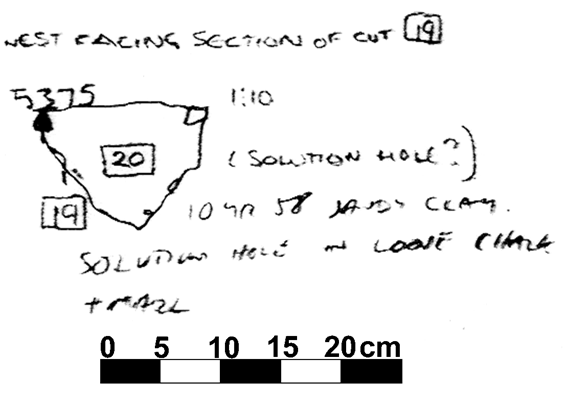 WEST FACING SECTION OF CUT 19
5375
1:10
20
(SOLUTION HOLE?)
19
10 YR 58 SANDY CLAY.
SOLUTION HOLE IN LOOSE CHALK
+ MARL
0 5 10 15 20cm